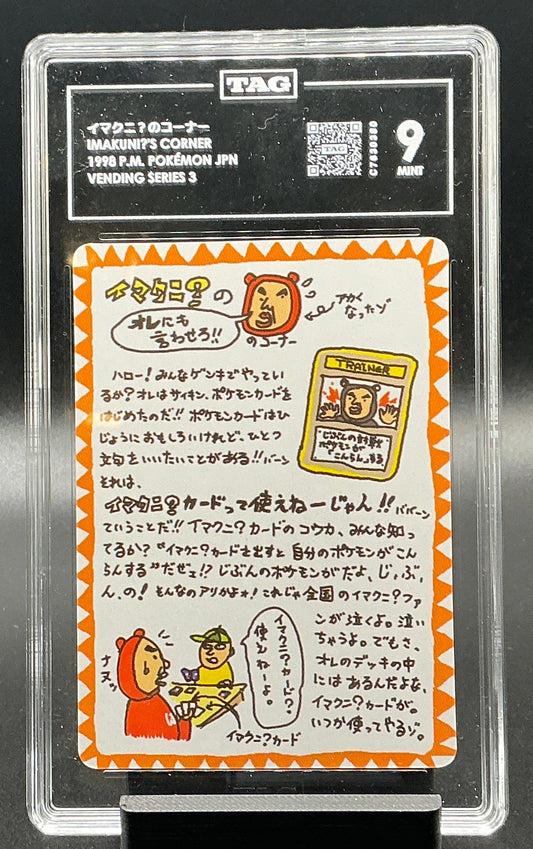 TAG
イマクニ?のコーナー
IMAKUNI?'S CORNER
1998 P.M. POKÉMON JPN
VENDING SERIES 3
TAG
C7630380
9
MINT
イマクニ?の
オレにも
言わせろ!!
のコーナー
アカく
なったゾ
ハロー!みんなゲンキでやってい
るか?オレはサイキン、ポケモンカードを
はじめたのだ!!ポケモンカードはひ
じょうにおもしろいけれど、ひとつ
文句をいいたいことがある!!バーン
それは、
TRAINER
じぶんの
ポケモンが
「こんらん」する
イマクニ?カードって使えねーじゃん!!ババーン
ていうことだ!!イマクニ?カードのコウカ、みんな知っ
てるか?"イマクニ?カードを出すと自分のポケモンがこん
らんする"だぜェ!?じぶんのポケモンがだよ、じ、ぶ、
ん、の!そんなのアリかよォ!これじゃ全国のイマクニ?ファ
ンが泣くよ。泣い
ちゃうよ。でもさ、
オレのデッキの中
にはあるんだよな、
イマクニ?カードが。
いつか使ってやるゾ。
イマクニ?カード?
使えねーよ。
ナヌッ
イマクニ?カード